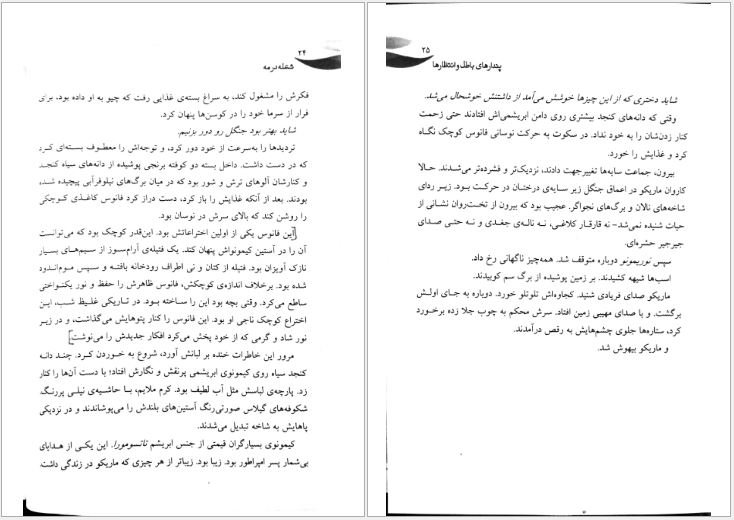 ۲۴
شعله در مه
فکرش را مشغول کند، به سراغ بسته‌ی غذایی رفت که چیو به او داده بود، برای
فرار از سرما خود را در کوسن‌ها پنهان کرد.
شاید بهتر بود جنگل رو دور بزنیم.
تردیدها را به‌سرعت از خود دور کرد، و توجه‌اش را معطوف بسته‌ای کرد
که در دست داشت. داخل بسته دو کوفته برنجی پوشیده از دانه‌های سیاه کنجد
و کنارشان آلوهای ترش و شور بود که در میان برگ‌های نیلوفرآبی پیچیده شده
بودند. بعد از آنکه غذایش را باز کرد، دست دراز کرد فانوس کاغذی کوچکی
را روشن کند که بالای سرش در نوسان بود.
این فانوس یکی از اولین اختراعاتش بود. این‌قدر کوچک بود که می‌توانست
آن را در آستین کیمونواش پنهان کند. یک فتیله‌ی آرام‌سوز از سیم‌های بسیار
نازک آویزان بود. فتیله از کتان و نی اطراف رودخانه بافته و سپس موم‌اندود
شده بود. برخلاف اندازه‌ی کوچکش، فانوس ظاهرش را حفظ و نور یکنواختی
ساطع می‌کرد. وقتی بچه بود این را ساخته بود. در تاریکی غلیظ شب، این
اختراع کوچک ناجی او بود. این فانوس را کنار پتوهایش می‌گذاشت، و در زیر
نور شاد و گرمی که از خود پخش می‌کرد افکار جدیدش را می‌نوشت.
مرور این خاطرات خنده بر لبانش آورد، شروع به خوردن کرد. چند دانه
کنجد سیاه روی کیمونوی ابریشمی پرنقش و نگارش افتاد؛ با دست آن‌ها را کنار
زد. پارچه‌ی لباسش مثل آب لطیف بود. کرم ملایم، با حاشیه‌ی نیلی پررنگ.
شکوفه‌های گیلاس صورتی‌رنگ آستین‌های بلندش را می‌پوشاندند و در نزدیکی
پاهایش به شاخه تبدیل می‌شدند.
کیمونوی بسیارگران قیمتی از جنس ابریشم تاتسومورا. این یکی از هدایای
بی‌شمار پسر امپراطور بود. زیبا بود. زیباتر از هر چیزی که ماریکو در زندگی داشت.
۲۵
پندارهای باطل و انتظارها
شاید دختری که از این چیزها خوشش می‌آمد از داشتنش خوشحال می‌شد.
وقتی که دانه‌های کنجد بیشتری روی دامن ابریشمی‌اش افتادند حتی زحمت
کنار زدن‌شان را به خود نداد. در سکوت به حرکت نوسانی فانوس کوچک نگاه
کرد و غذایش را خورد.
بیرون، جماعت سایه‌ها تغییرجهت دادند، نزدیک‌تر و فشرده‌تر می‌شدند. حالا
کاروان ماریکو در اعماق جنگل زیر سایه‌ی درختان در حرکت بود. زیر ردای
شاخه‌های نالان و برگ‌های نجواگر. عجیب بود که بیرون از تخت‌روان نشانی از
حیات شنیده نمی‌شد- نه قارقار کلاغی، نه ناله‌ی جغدی و نه حتی صدای
جیرجیر حشره‌ای.
سپس نوریمونو دوباره متوقف شد. همه‌چیز ناگهانی رخ داد.
اسب‌ها شیهه کشیدند. بر زمین پوشیده از برگ سم کوبیدند.
ماریکو صدای فریادی شنید. کجاوه‌اش تلوتلو خورد. دوباره به جای اولش
برگشت. و با صدای مهیبی زمین افتاد. سرش محکم به چوب جلا زده برخورد
کرد، ستاره‌ها جلوی چشم‌هایش به رقص درآمدند.
و ماریکو بیهوش شد.